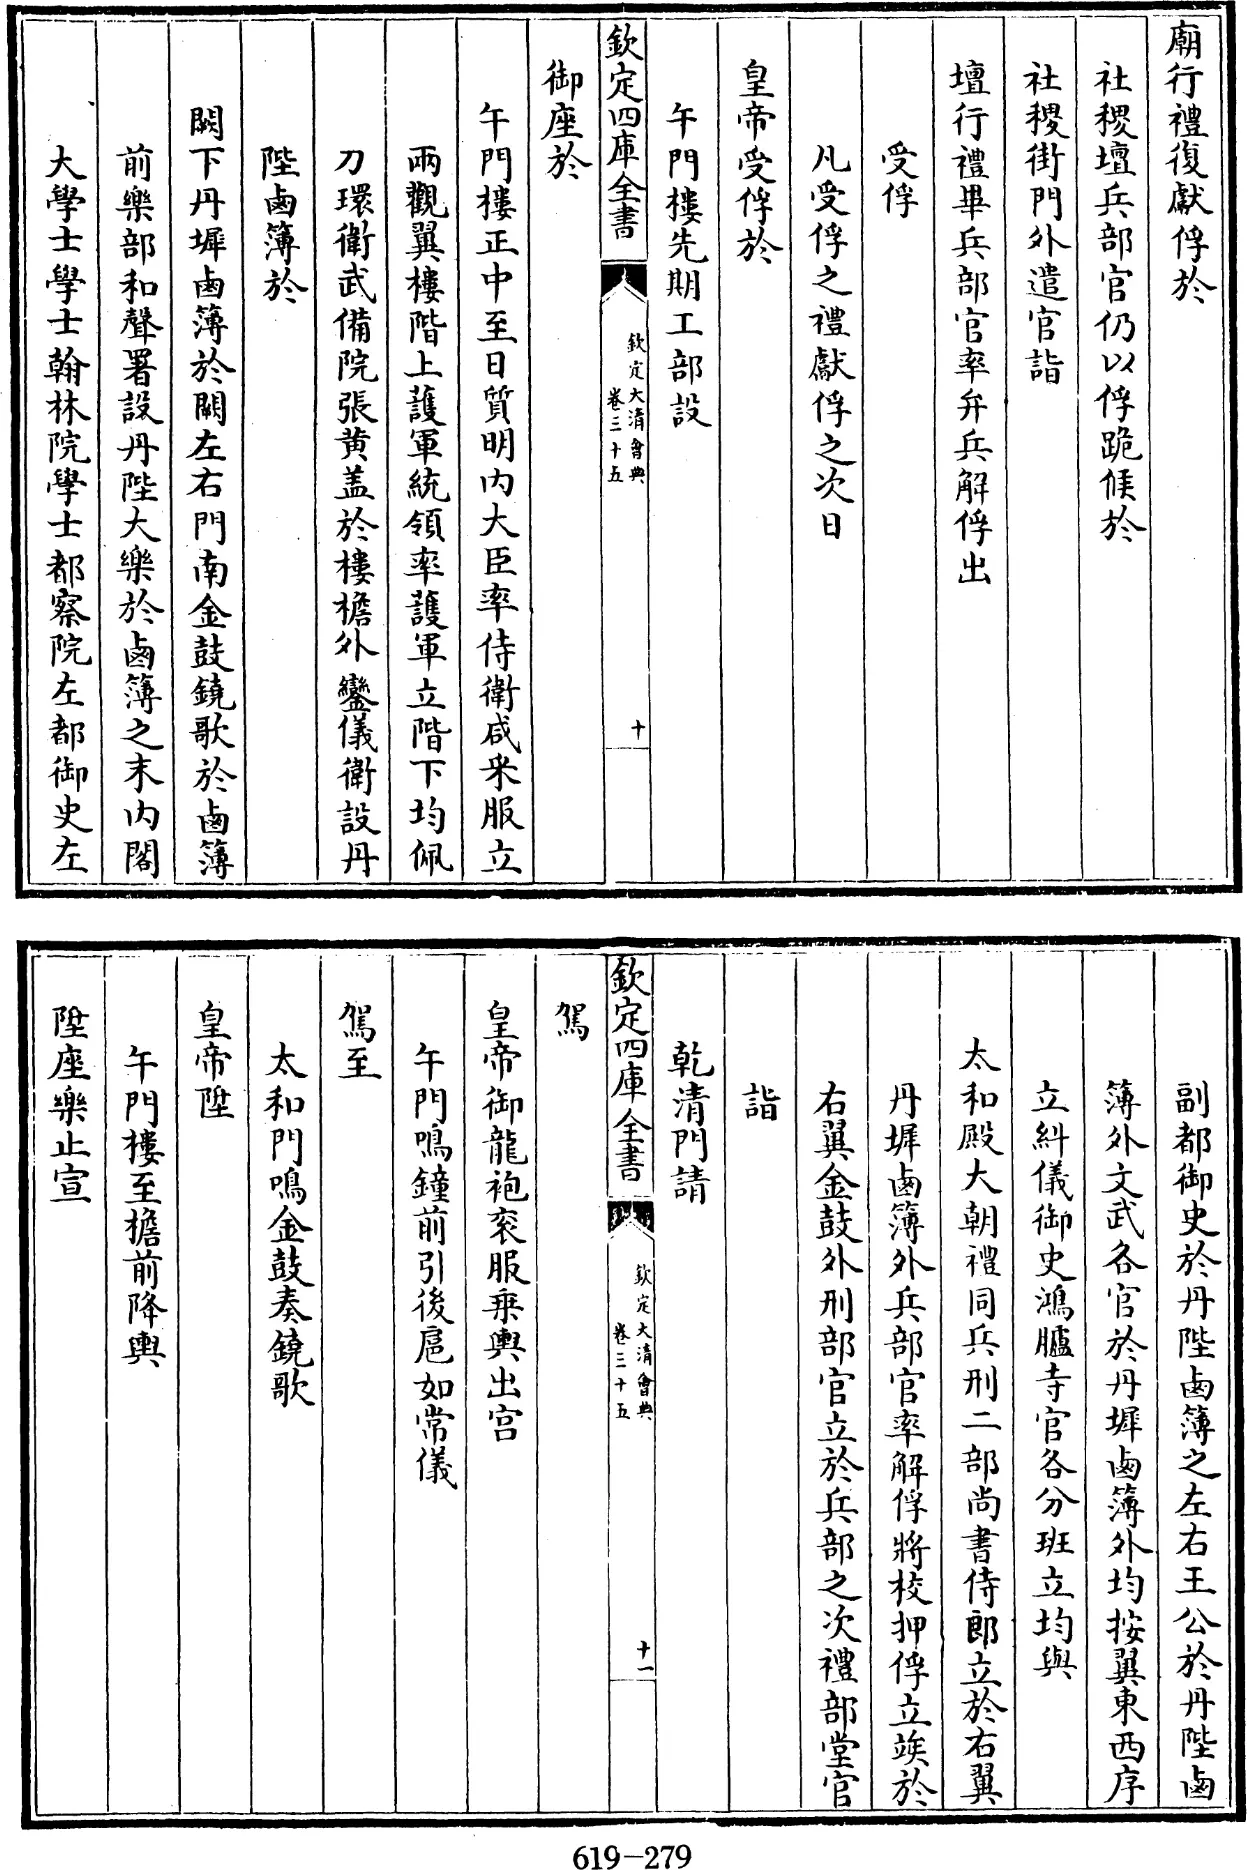 廟行禮復獻俘於
社稷壇兵部官仍以俘跪候於
社稷街門外遣官詣
壇行禮畢兵部官率弁兵解俘出
受俘
凡受俘之禮獻俘之次日
皇帝受俘於
午門樓先期工部設
欽定四庫全書
欽定大清會典
卷三十五
十
御座於
午門樓正中至日質明內大臣率侍衛咸采服立
兩觀翼樓階上護軍統領率護軍立階下均佩
刀環衛武備院張黄盖於樓檐外鑾儀衛設丹
陛鹵簿於
闕下丹墀鹵簿於闕左右門南金鼓鐃歌於鹵簿
前樂部和聲署設丹陛大樂於鹵簿之末內閣
大學士學士翰林院學士都察院左都御史左
副都御史於丹陛鹵簿之左右王公於丹陛鹵
簿外文武各官於丹墀鹵簿外均按翼東西序
立糾儀御史鴻臚寺官各分班立均與
太和殿大朝禮同兵刑二部尚書侍郎立於右翼
丹墀鹵簿外兵部官率解俘將校押俘立竢於
右翼金鼓外刑部官立於兵部之次禮部堂官
詣
乾清門請
欽定四庫全書
欽定大清會典
卷三十五
十一
駕
皇帝御龍袍衮服乗輿出宫
午門鳴鐘前引後扈如常儀
駕至
太和門鳴金鼓奏鐃歌
皇帝陞
午門樓至檐前降輿
陞座樂止宣
619-279